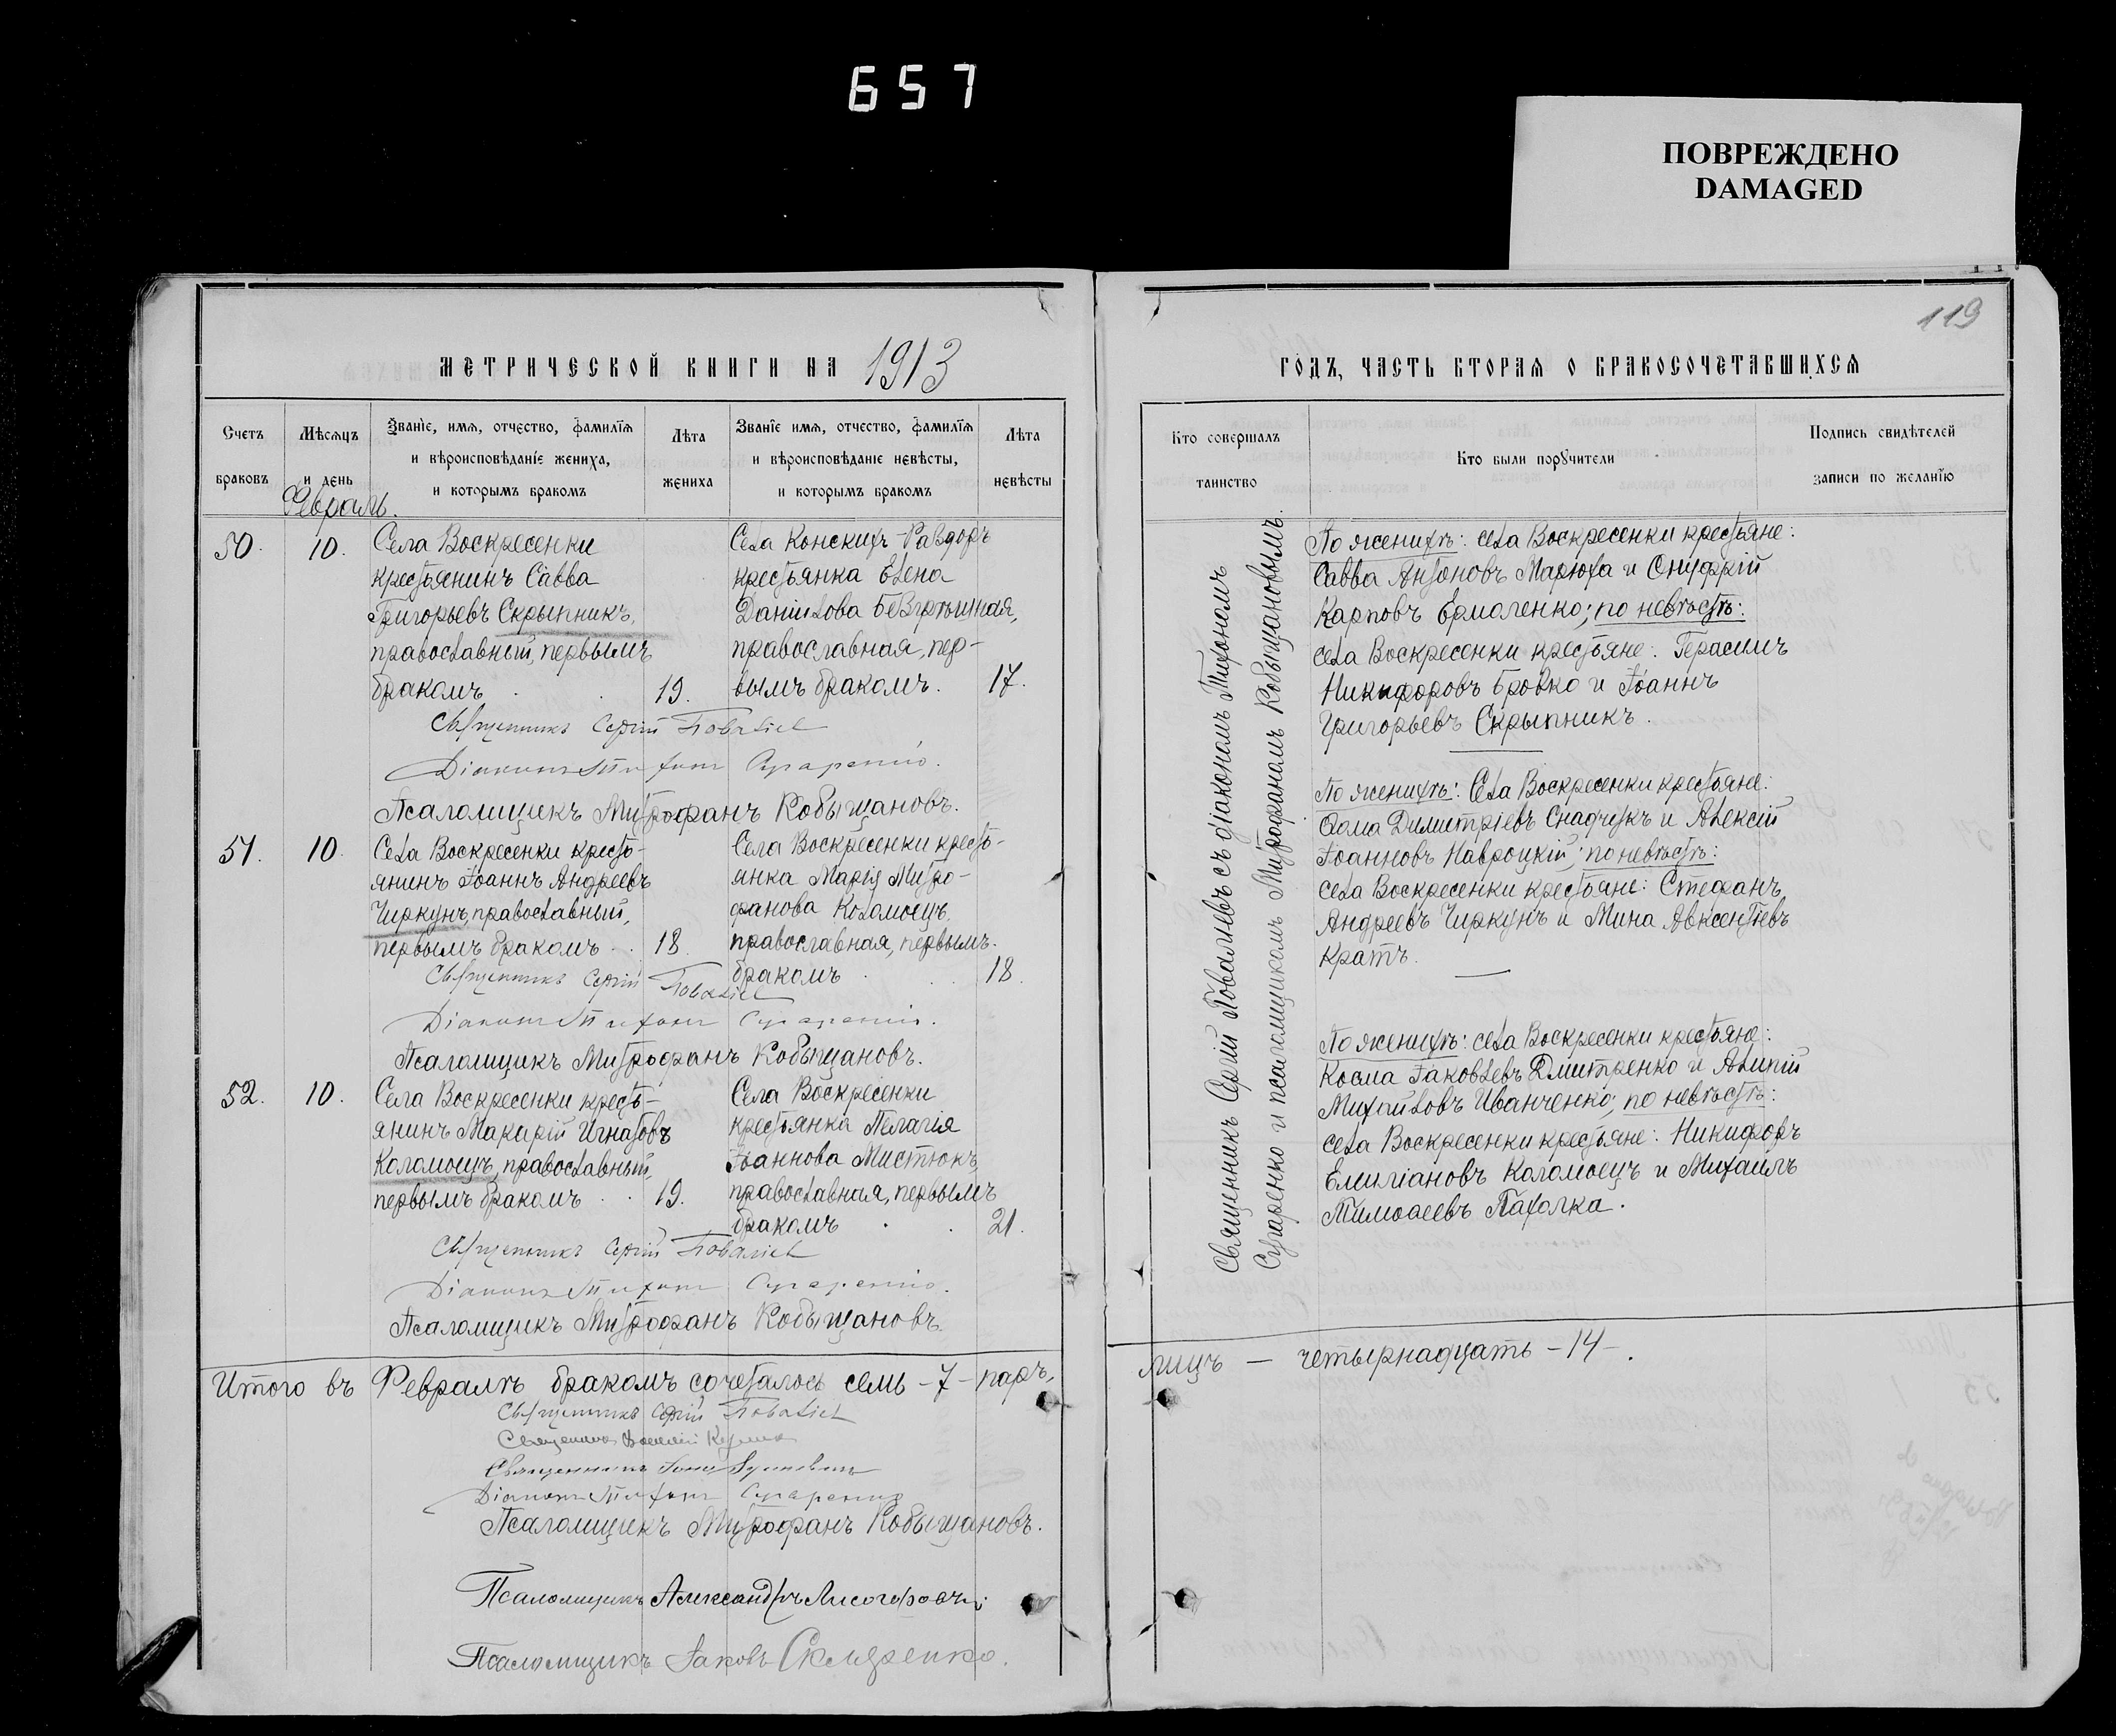 657
ПОВРЕЖДЕНО
DAMAGED
119
МЕТРИЧЕСКОЙ КНИГИ НА 1913
ГОДЪ, ЧАСТЬ ВТОРАЯ О БРАКОСОЧЕТАВШИХСЯ
Счетъ браковъ
Мѣсяцъ и день
Званіе, имя, отчество, фамилія
и вѣроисповѣданіе жениха,
и которымъ бракомъ
Лѣта жениха
Званіе, имя, отчество, фамилія
и вѣроисповѣданіе невѣсты,
и которымъ бракомъ
Лѣта невѣсты
Кто совершалъ таинство
Кто были поручители
Подпись свидѣтелей
записи по желанію
Февраль.
50.
10.
Села Воскресенки
крестьянинъ Савва
Григорьевъ Скрыпникъ,
православный, первымъ
бракомъ
19.
Села Конскихъ-Раздоръ
крестьянка Елена
Даніилова Безгрѣшная,
православная, пер-
вымъ бракомъ.
17.
Священникъ Сергій Поваліевъ
Діаконъ Тихонъ Сухаренко.
Псаломщикъ Митрофанъ Кобыщановъ.
51.
10.
Села Воскресенки кресть-
янинъ Іоаннъ Андреевъ
Чиркунъ, православный,
первымъ бракомъ
18.
Села Воскресенки кресть-
янка Марія Митро-
фанова Коломоецъ,
православная, первымъ
бракомъ
18.
Священникъ Сергій Поваліевъ
Діаконъ Тихонъ Сухаренко.
Псаломщикъ Митрофанъ Кобыщановъ.
52.
10.
Села Воскресенки кресть-
янинъ Макарій Игнатовъ
Коломоецъ, православный,
первымъ бракомъ
19.
Села Воскресенки
крестьянка Пелагія
Іоаннова Мистюкъ,
православная, первымъ
бракомъ
21.
Священникъ Сергій Поваліевъ
Діаконъ Тихонъ Сухаренко.
Псаломщикъ Митрофанъ Кобыщановъ.
Итого въ Февралѣ бракомъ сочеталось семь -7- паръ,
Священникъ Сергій Поваліевъ
Священникъ Василій
Священникъ
Діаконъ Тихонъ Сухаренко
Псаломщикъ Митрофанъ Кобыщановъ.
Псаломщикъ Александръ
Псаломщикъ Іаковъ
Священникъ Сергій Поваліевъ съ діакономъ Тихономъ
Сухаренко и псаломщикомъ Митрофаномъ Кобыщановымъ.
По женихѣ: села Воскресенки крестьяне:
Савва Антоновъ Марюха и Онуфрій
Карповъ Ермоленко; по невѣстѣ:
села Воскресенки крестьяне: Герасимъ
Никифоровъ Бровко и Іоаннъ
Григорьевъ Скрыпникъ.
По женихѣ: Села Воскресенки крестьяне:
Ѳома Димитріевъ Снадчукъ и Алексій
Іоанновъ Навроцкій; по невѣстѣ:
села Воскресенки крестьяне: Стефанъ
Андреевъ Чиркунъ и Мина Авксентіевъ
Кратъ.
По женихѣ: села Воскресенки крестьяне:
Косма Іаковлевъ Дмитренко и Алипій
Михаиловъ Иванченко; по невѣстѣ:
села Воскресенки крестьяне: Никифоръ
Емиліановъ Коломоецъ и Михаилъ
Тимоѳеевъ Пахолка.
лицъ — четырнадцать -14-.